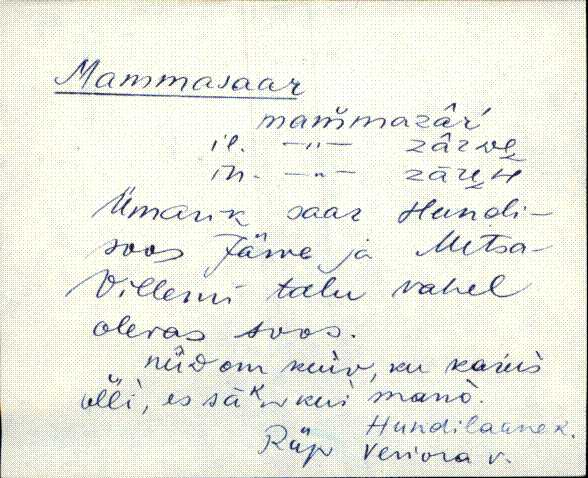 Mammasaar
mam̆mazâŕ
il. —„— zârwe̮
in. —„— zāre̮H
Ümarik saar Hundi-
soos Järve ja Metsa-
Villemi talu vahel
olevas soos.
nüd om kuiv, ku
ol̆li, es sā kui manò.
Hundilaane k.
Räp Veriora v.